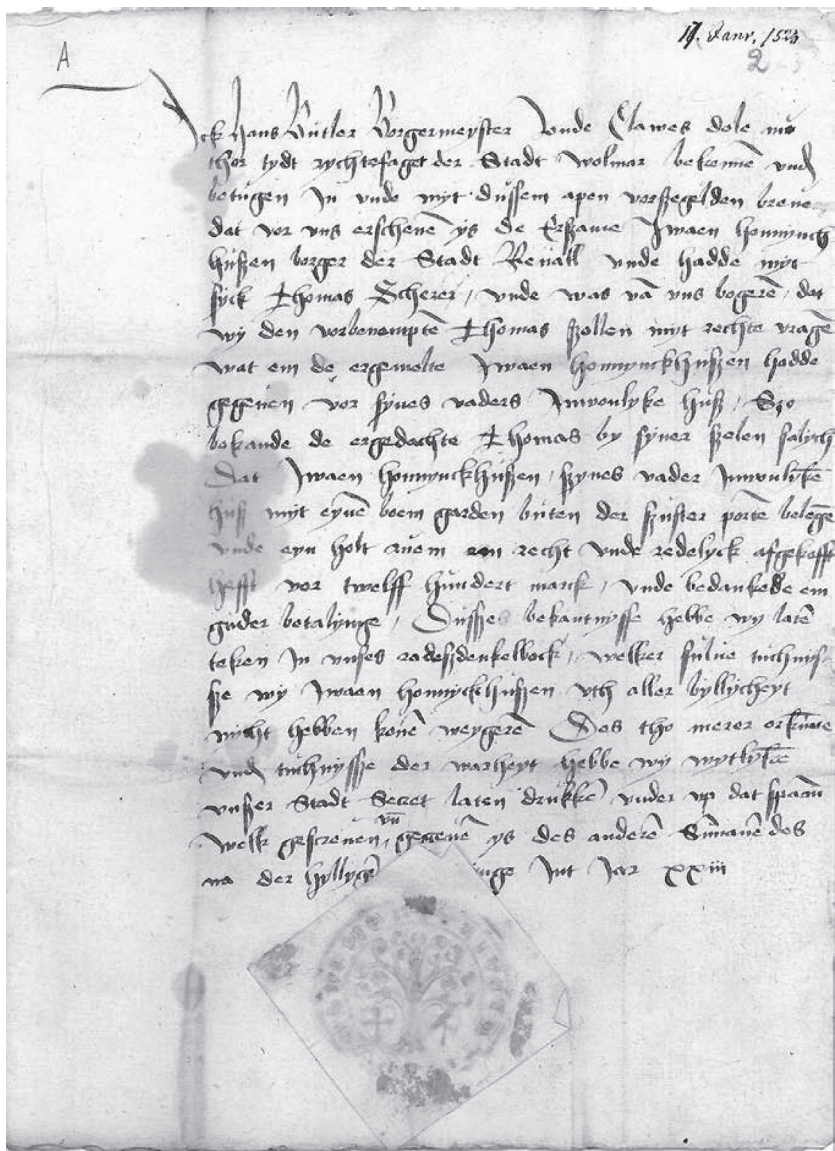 17. Janr. 1523
2
A
Ick Hans Butler Borgermeyster vnde Clawes dole nu
thor tydt rychtefaget der Stadt wolmar bekenne vnd
betugen In vnde myt dussem apen vorsegelden breue
dat vor vns erschene ys de Ersame Iwaen honnynck
hußen borger der Stadt Reuall vnde hadde myt
syck Thomas Scherer, vnde was vā vns bogerē, dat
wy den vorbenomptē Thomas szollen myt rechte vragē
wat em de ergemelte Iwaen honnynckhußen hadde
gegeuen vor synes vaders Inwonlyke huß, Szo
bekande de ergedachte Thomas by syner szelen salych
Dat Iwaen honnynckhußen, szynes vader Inwonlykē
huß myt eynē boem garden buten der portē belegē
vnde eyn holt ruem recht vnde redelyck afgekofft
hefft vor twelff hundert marck, vnde bedankede em
guder betalynge, Dusses bekantnysse hebbe wy latē
teken In vnses radeszdenkelbock, welker sulue tuchnys
sze wy Iwaen honnyckhußen vth aller byllycheyt
nycht hebben konē weygerē Des tho merer
vnd tuchnysse der warheyt hebbe wy wytlykē
vnßer Stadt Secret laten druckē vnder vp dat
welk gescreuen vn̄ gegeuē ys des anderē des
na der hyllygē Int Jar xxiii